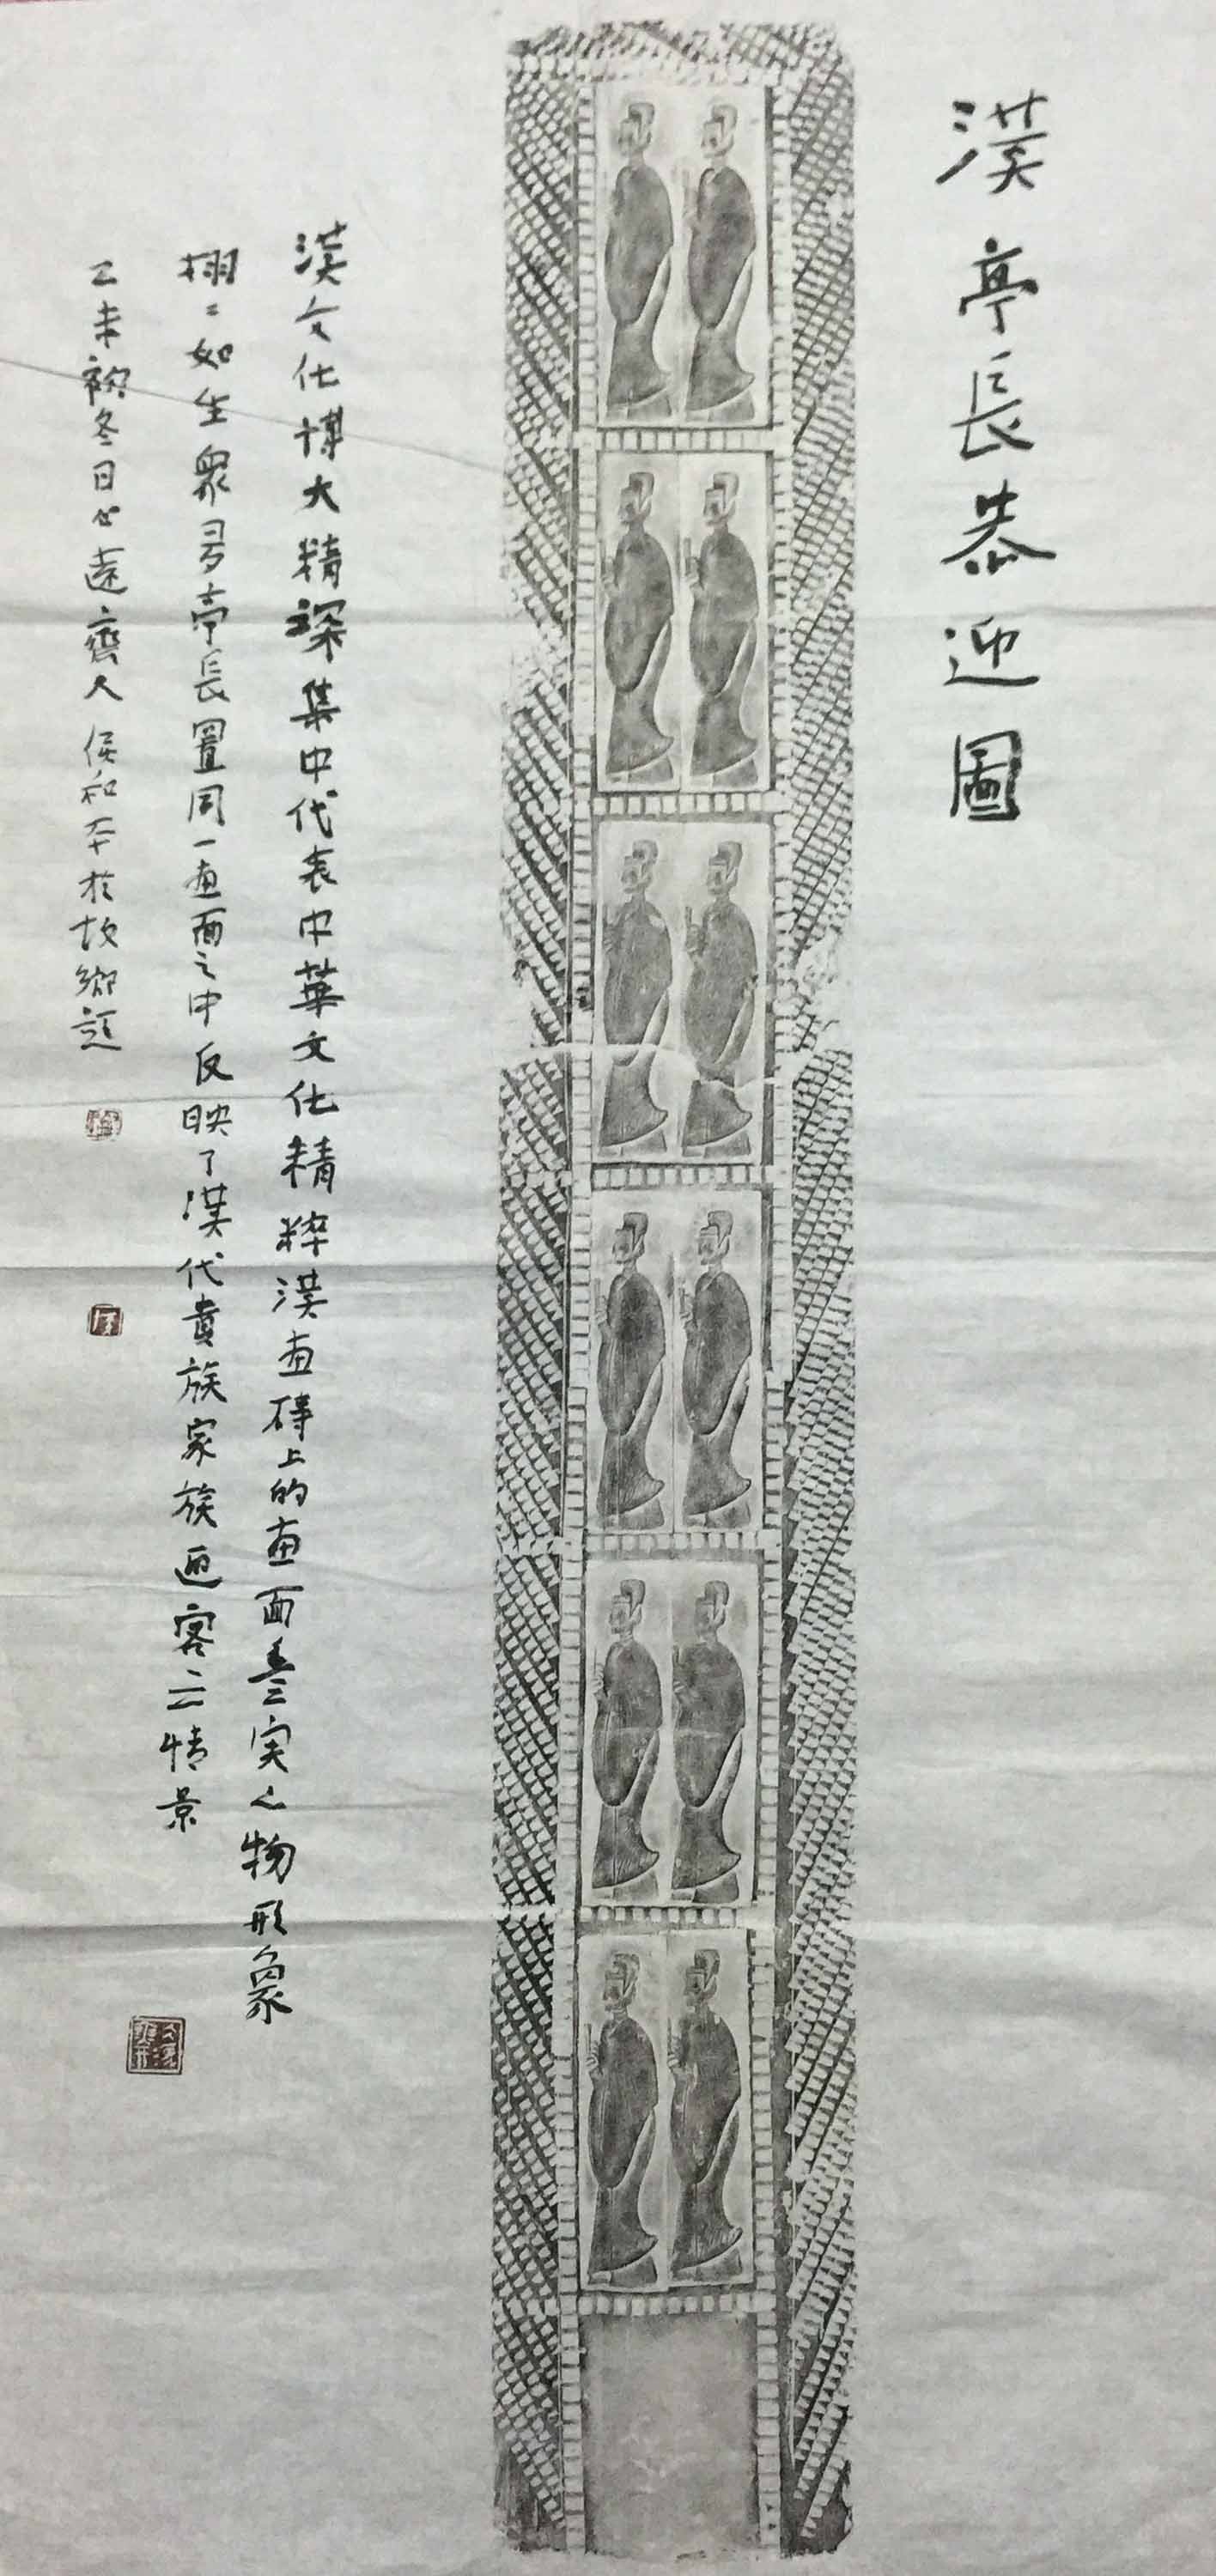 漢亭長恭迎圖
漢文化博大精深集中代表中華文化精粹漢畫磚上的畫面真实人物形象
栩二如生眾多亭長置同一畫面之中反映了漢代貴族家族迎客之情景
乙未初冬日心遠齋人侯和平於故鄉題